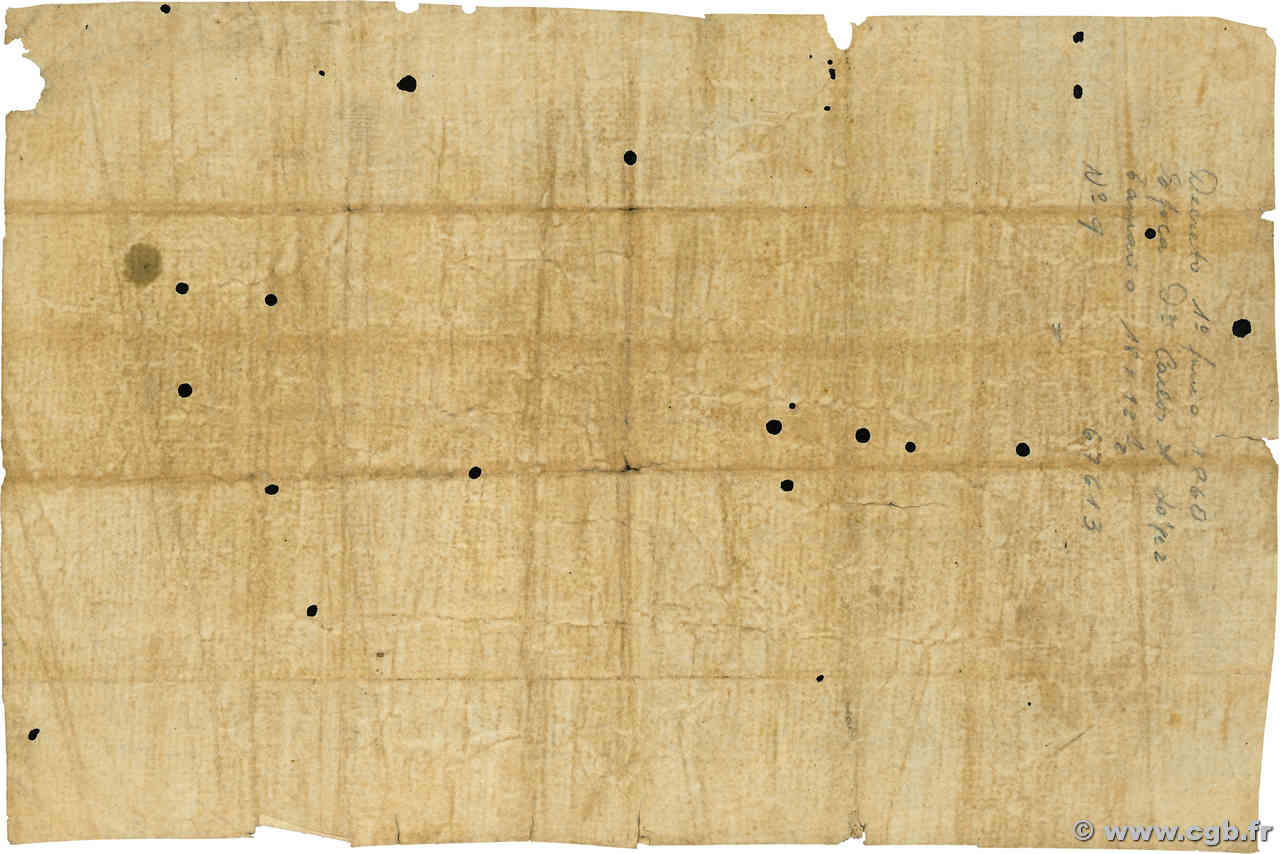 Decreto 1º Junio 1860
Epoca Dn Carlos A López
tamaño 18 x 12 ½
Nº 9 67613
© www.cgb.fr